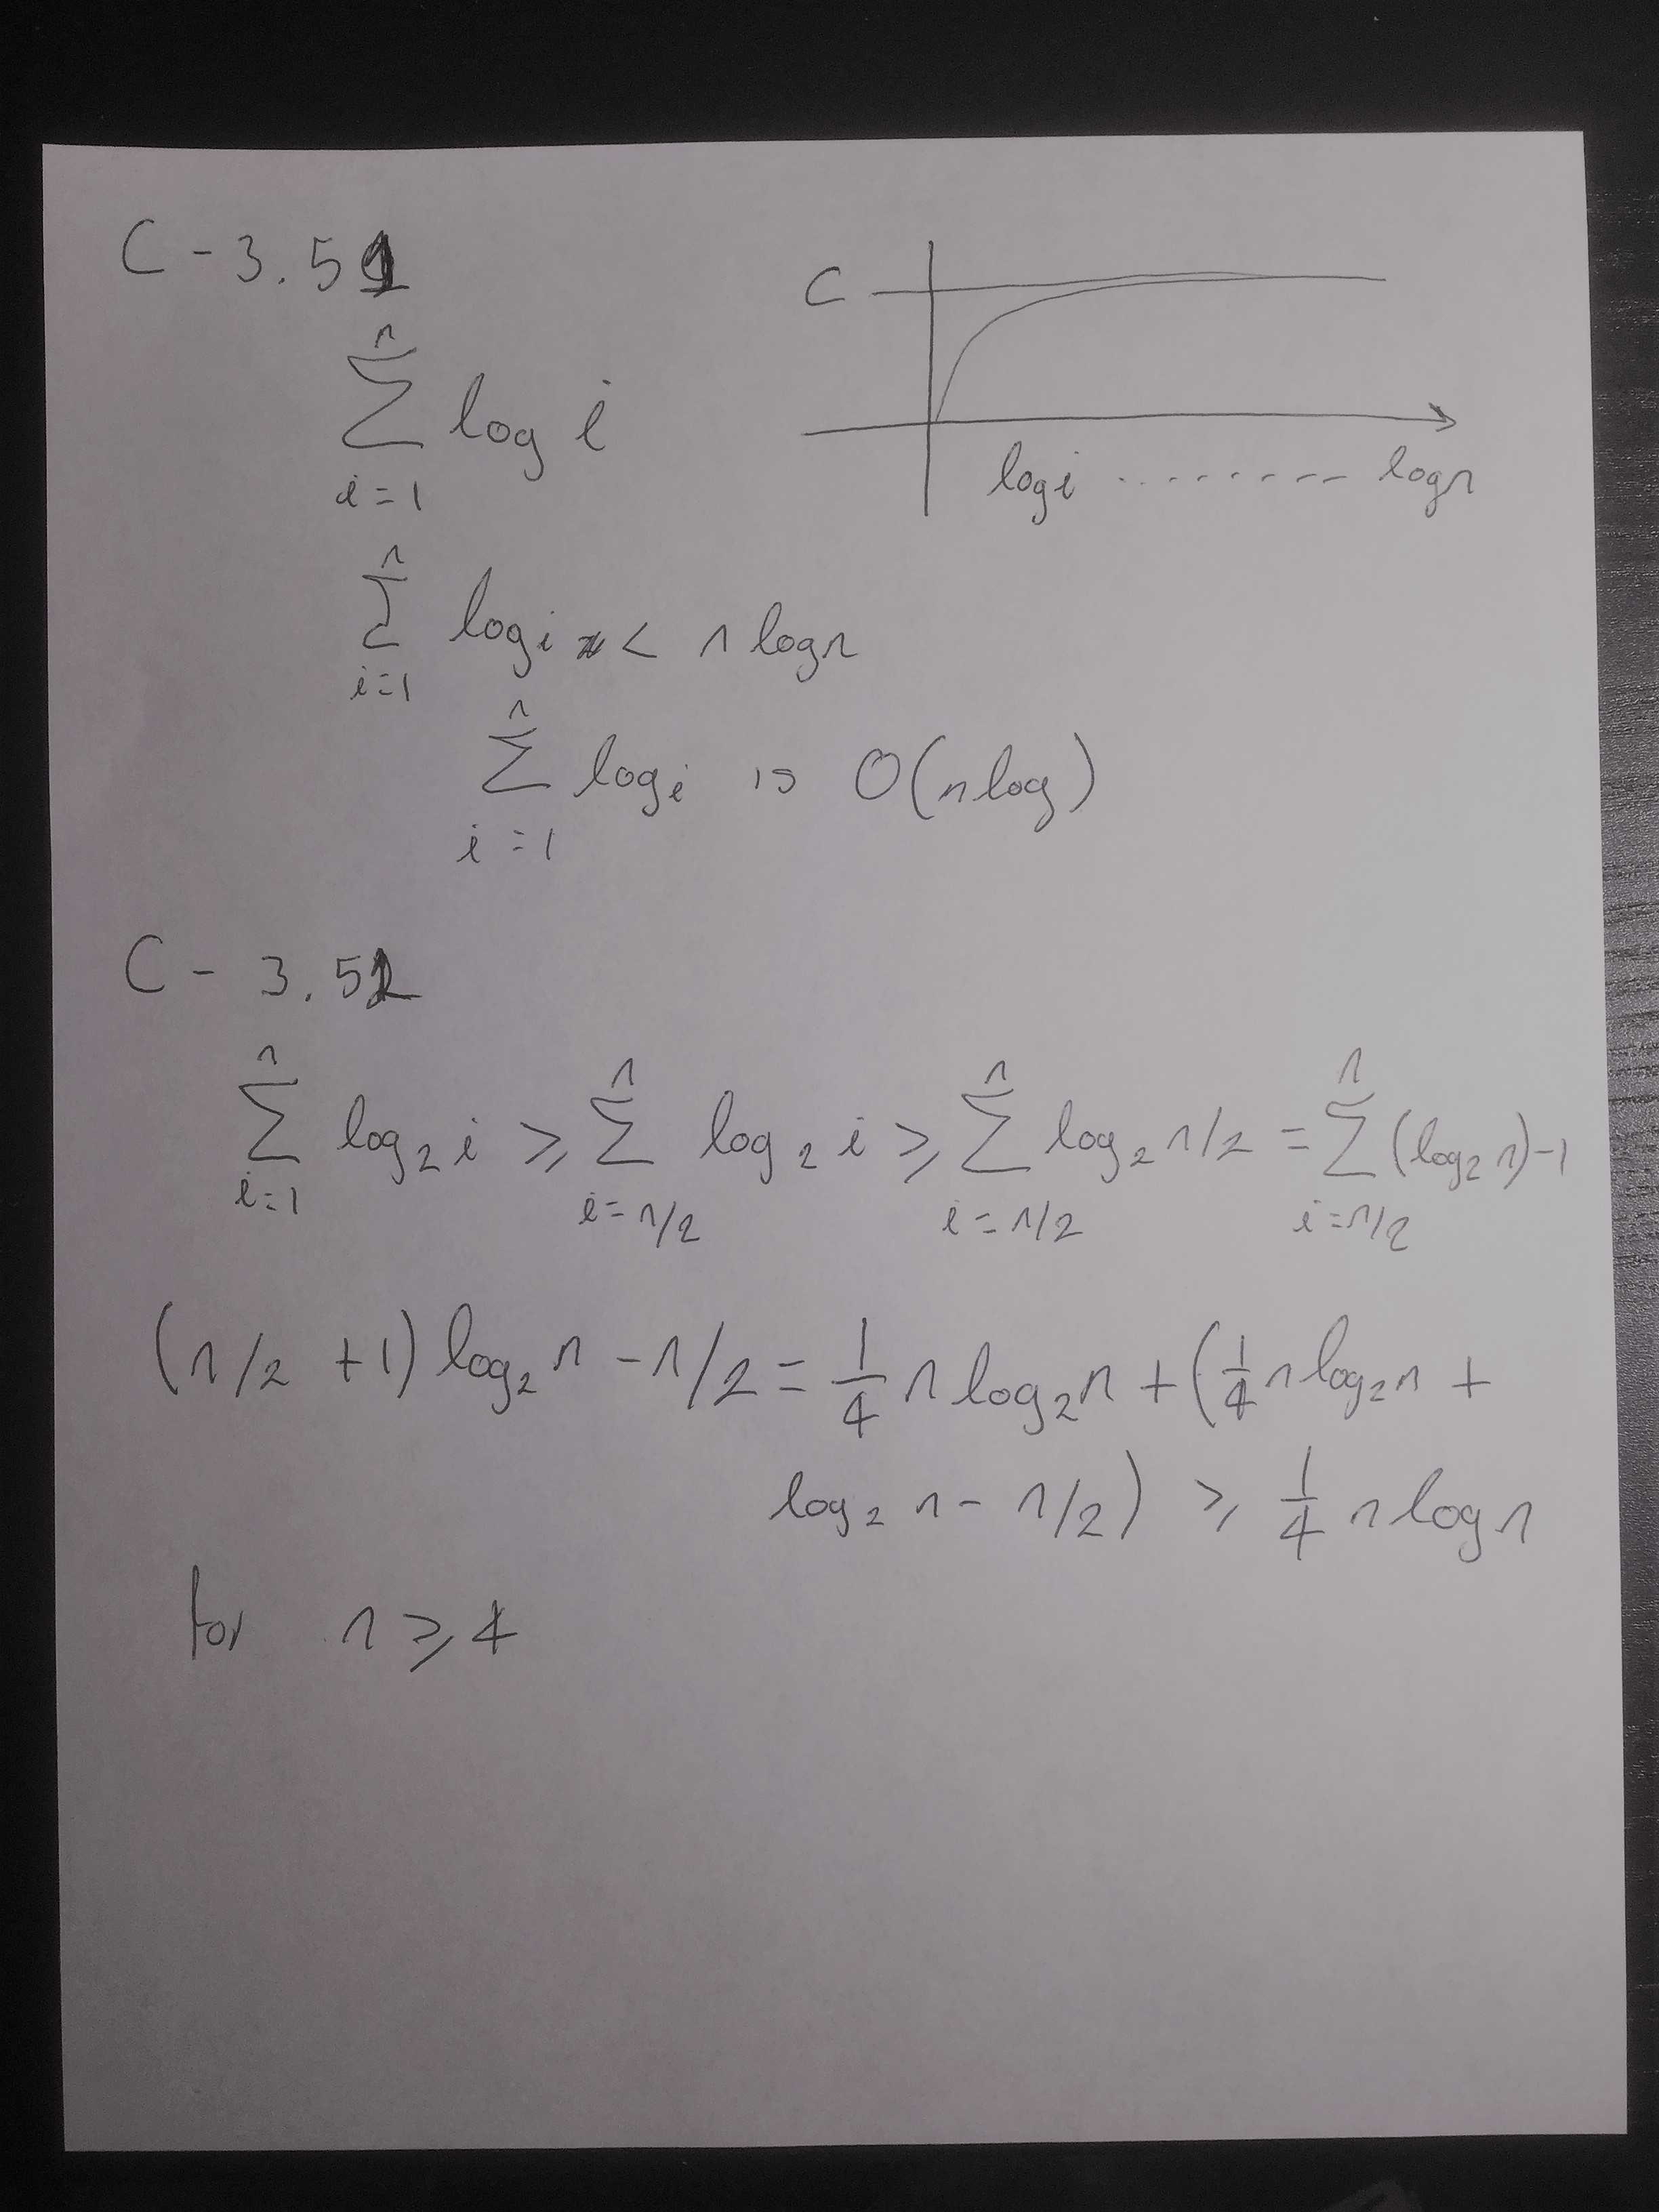 C - 3.51
n
∑ log i
i = 1
C
log i - - - - - - - - log n
n
∑ log i < n log n
i = 1
n
∑ log i is O(n log)
i = 1
C - 3.52
n n n n
∑ log₂ i ≥ ∑ log₂ i ≥ ∑ log₂ n/2 = ∑ (log₂ n) - 1
i = 1 i = n/2 i = n/2 i = n/2
(n/2 + 1) log₂ n - n/2 = 1/4 n log₂ n + (1/4 n log₂ n +
log₂ n - n/2) ≥ 1/4 n log n
for n ≥ 4